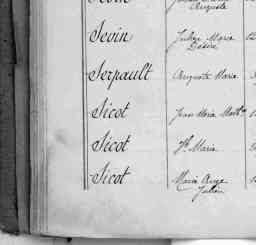 Auguste
Sevin Julien Marie
Désiré
Serpault Auguste Marie
Sicot Jean Marie Math
Sicot Marie
Sicot Marie Ange
Julien